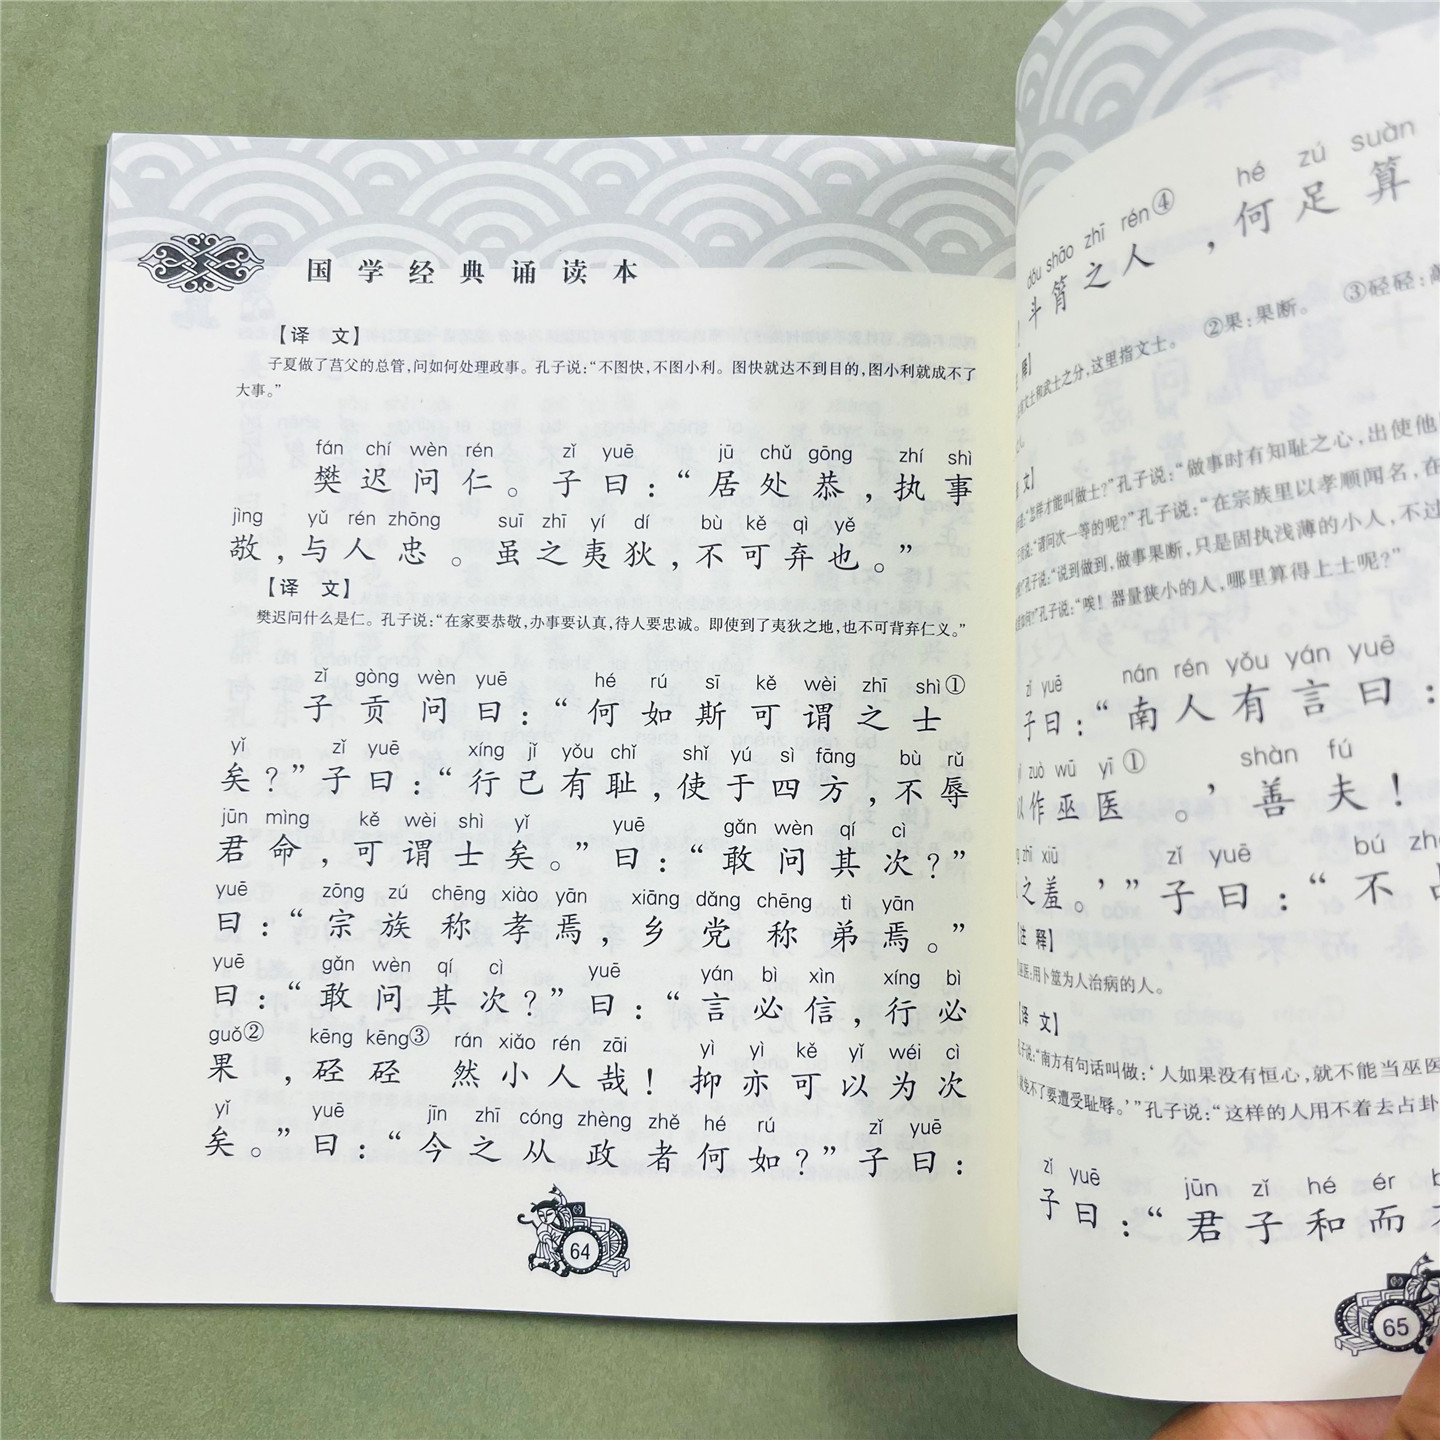 国学经典诵读本
【译 文】
子夏做了莒父的总管,问如何处理政事。孔子说:“不图快,不图小利。图快就达不到目的,图小利就成不了
大事。”
fán chí wèn rén zǐ yuē jū chǔ gōng zhí shì
樊迟问仁。子曰:“居处恭,执事
jìng yǔ rén zhōng suī zhī yí dí bù kě qì yě
敬,与人忠。虽之夷狄,不可弃也。”
【译 文】
樊迟问什么是仁。孔子说:“在家要恭敬,办事要认真,待人要忠诚。即使到了夷狄之地,也不可背弃仁义。”
zǐ gòng wèn yuē hé rú sī kě wèi zhī shì①
子贡问曰:“何如斯可谓之士
yǐ zǐ yuē xíng jǐ yǒu chǐ shǐ yú sì fāng bù rǔ
矣?”子曰:“行己有耻,使于四方,不辱
jūn mìng kě wèi shì yǐ yuē gǎn wèn qí cì
君命,可谓士矣。”曰:“敢问其次?”
yuē zōng zú chēng xiào yān xiāng dǎng chēng tì yān
曰:“宗族称孝焉,乡党称弟焉。”
yuē gǎn wèn qí cì yuē yán bì xìn xíng bì
曰:“敢问其次?”曰:“言必信,行必
guǒ② kēng kēng③ rán xiǎo rén zāi yì yì kě yǐ wéi cì
果,硁硁然小人哉!抑亦可以为次
yǐ yuē jīn zhī cóng zhèng zhě hé rú zǐ yuē
矣。”曰:“今之从政者何如?”子曰:
64
dǒu shāo zhī rén④ hé zú suàn
斗筲之人,何足算
②果:果断。 ③硁硁:
有文士和武士之分,这里指文士。
文】
“怎样才能叫做士?”孔子说:“做事时有知耻之心,出使他
“请问次一等的呢?”孔子说:“在宗族里以孝顺闻名,在
孔子说:“说到做到,做事果断,只是固执浅薄的小人,不过
如何?”孔子说:“唉!器量狭小的人,哪里算得上士呢?”
zǐ yuē nán rén yǒu yán yuē
子曰:“南人有言曰:
zuò wū yī① shàn fú
以作巫医。’善夫!
zhī xiū zǐ yuē bú
之羞。’”子曰:“不占
【注 释】
巫医:用卜筮为人治病的人。
【译 文】
孔子说:“南方有句话叫做:‘人如果没有恒心,就不能当巫医
免不了要遭受耻辱。’”孔子说:“这样的人用不着去占卦
zǐ yuē jūn zǐ hé ér
子曰:“君子和而不
65